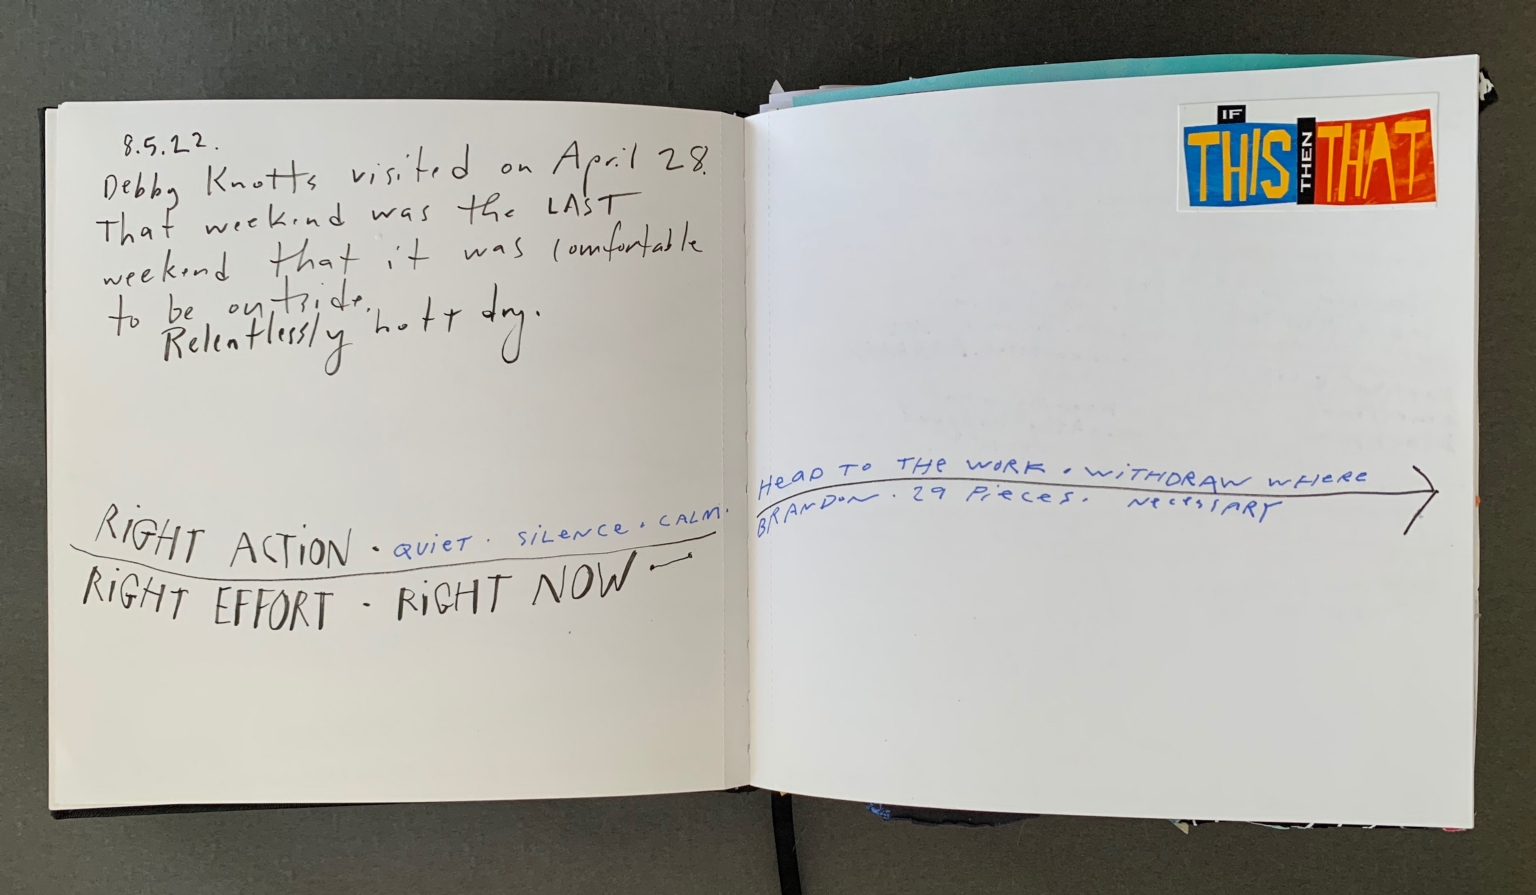 8.5.22.
Debby Knotts visited on April 28.
That weekend was the LAST
weekend that it was comfortable
to be outside.
Relentlessly hot + dry.
RiGHT ACTiON · QUIET · SiLENCe · CALM.
RiGHT EFFORT · RiGHT NOW
IF
THIS THEN THAT
HeAD TO THe WORK · WiTHDRAW WHeRe
BRANDON · 29 Pieces. NecessARY